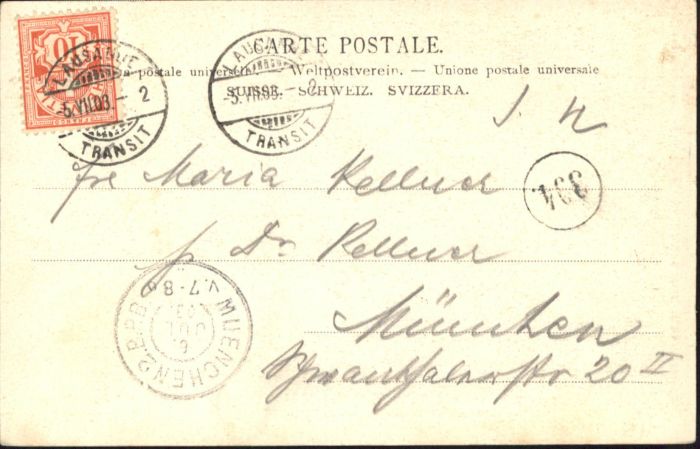 CARTE POSTALE.
postale universelle. — Weltpostverein. — Unione postale universale
SUISSE. SCHWEIZ. SVIZZERA.
10
LAUSANNE
-5.VII.03.- 2
TRANSIT
LAUSANNE
-5.VII.03.- 2
TRANSIT
Maria Kellner
334.
p Dr Kellner
München
20 II
MUENCHEN 2 B.P.
6.
JUL
03.
V. 7-8